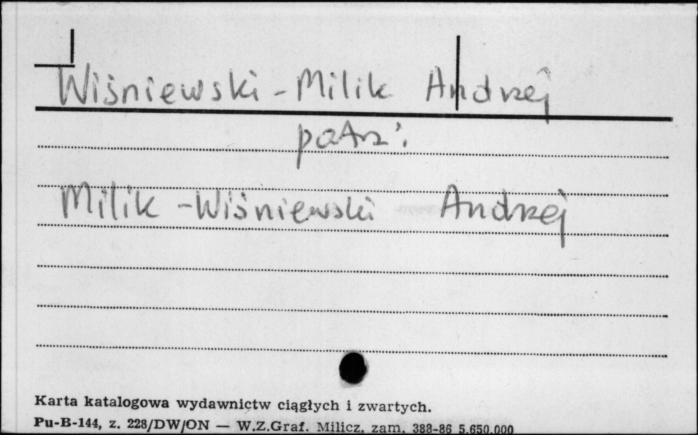 Wiśniewski-Milik Andrzej
patrz:
Milik-Wiśniewski Andrzej
Karta katalogowa wydawnictw ciągłych i zwartych.
Pu-B-144, z. 228/DW/ON — W.Z.Graf. Milicz, zam. 388-86 5.650.000